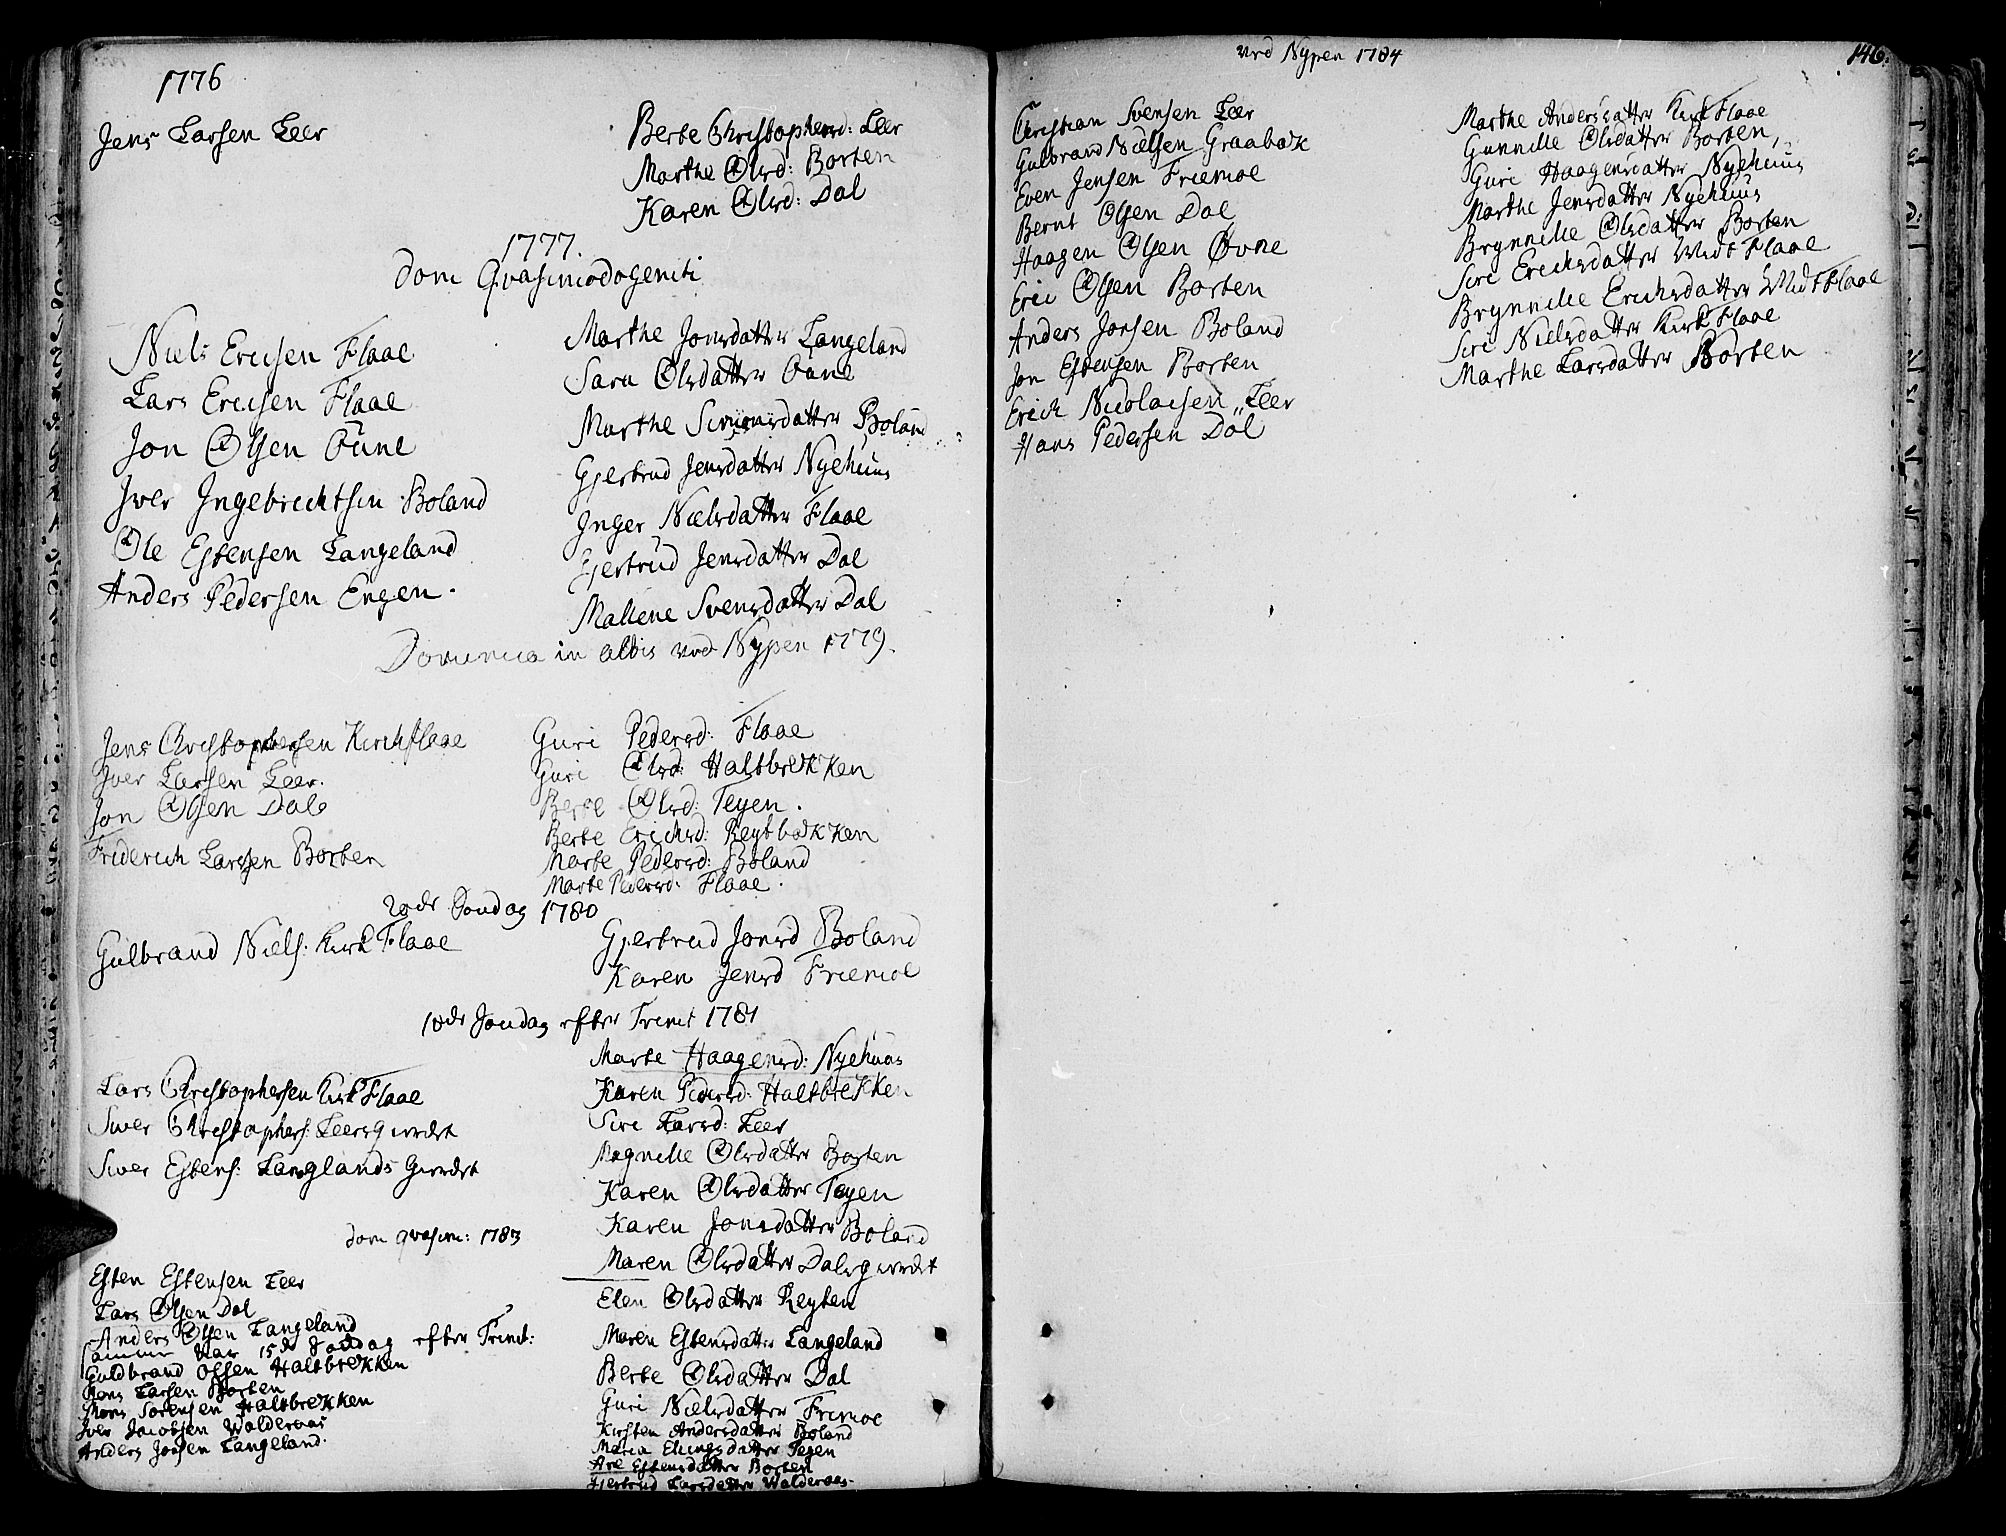 1776
Jens Larsen Leer
Berte Christophersd: Leer
Marthe Olsd: Borten
Karen Olsd: Dal
1777.
Dom Qvasimodogeniti
Niels Ericsen Flaae
Lars Ericsen Flaae
Jon Olsen Øune
Iver Ingebrichtsen Boland
Ole Estensen Langeland
Anders Pedersen Engen.
Marthe Jonsdatter Langeland
Sara Olsdatter Øune
Marthe Simonsdatter Boland
Gjertrud Jensdatter Nyehuus
Inger Nielsdatter Flaae
Gjertrud Jensdatter Dal
Mallene Svensdatter Dal
Dominica in albis ved Nypen 1779.
Jens Christophersen Kirchflaae
Iver Larsen Leer.
Jon Olsen Dal
Friderich Larsen Borten
Guri Pedersd: Flaae
Guri Olsd: Haltbrekken
Berte Olsd: Teyen.
Berte Erichsd: Reytbækken
Marte Pedersd: Boland
Marte Pedersd: Flaae.
20de Søndag 1780
Gulbrand Niels: Kirk Flaae
Gjertrud Jonsd Boland
Karen Jensd Friemoe
10de Søndag efter Trinit 1781
Lars Christophersen Kirk Flaae
Siver Christophers: Leersgierdet
Siver Estens: Langlands Gierdet
Marte Haagensd: Nyehuus
Karen Pedersd: Haltbrekken
Siri Larsd: Leer
Magnille Olsdatter Borten
Karen Olsdatter Teyen
Karen Jonsdatter Boland
Maren Olsdatter Dalsgierdet
Dom qvasim: 1783
Esten Estensen Leer
Lars Olsen Dal
Anders Olsen Langeland
Samme Aar 15de Søndag efter Trinit:
Guldbrand Olsen Haltbrekken
Mons Larsen Borten
Mons Sørensen Haltbrekken
Iver Jacobsen Walderaas
Anders Jonsen Langeland.
Elen Olsdatter Reyten
Maren Estensdatter Langeland
Berte Olsdatter Dal
Guri Nielsdatter Friemoe
Kirsten Andersdatter Boland
Maria Ellingsdatter Teyen
Are Estensdatter Borten
Gjertrud Larsdatter Walderaas.
ved Nypen 1784
146.
Christian Svensen Leer
Gulbrand Nielsen Graabæk
Even Jensen Friemoe
Bernt Olsen Dal
Haagen Olsen Øvne
Eric Olsen Borten
Anders Jonsen Boland
Jon Estensen Borten
Erich Nicolaisen Leer
Hans Pedersen Dal
Marthe Andersdatter Kirk Flaae
Gunnille Olsdatter Borten,
Guri Haagensdatter Nyehuus
Marthe Jensdatter Nyehuus
Brynnille Olsdatter Borten
Siri Erichsdatter Midt Flaae
Brynnille Erichsdatter Midt Flaae
Siri Nielsdatter Kirk Flaae
Marthe Larsdatter Borten